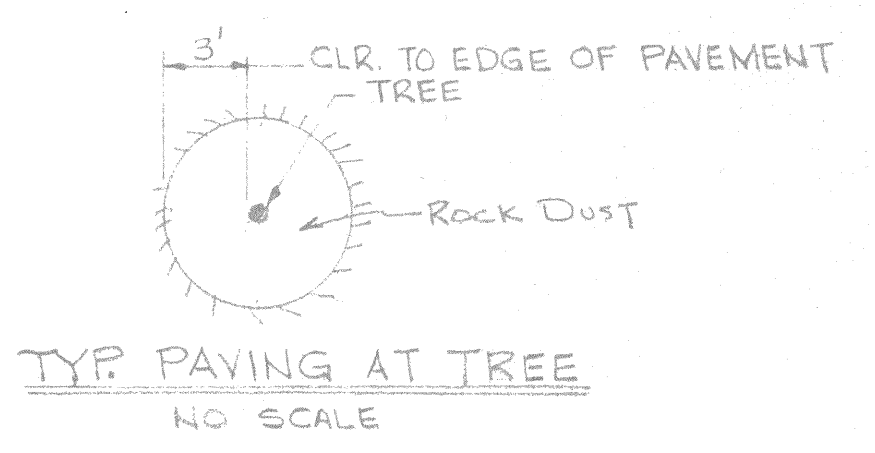 3'
CLR. TO EDGE OF PAVEMENT
TREE
ROCK DUST
TYP. PAVING AT TREE
NO SCALE